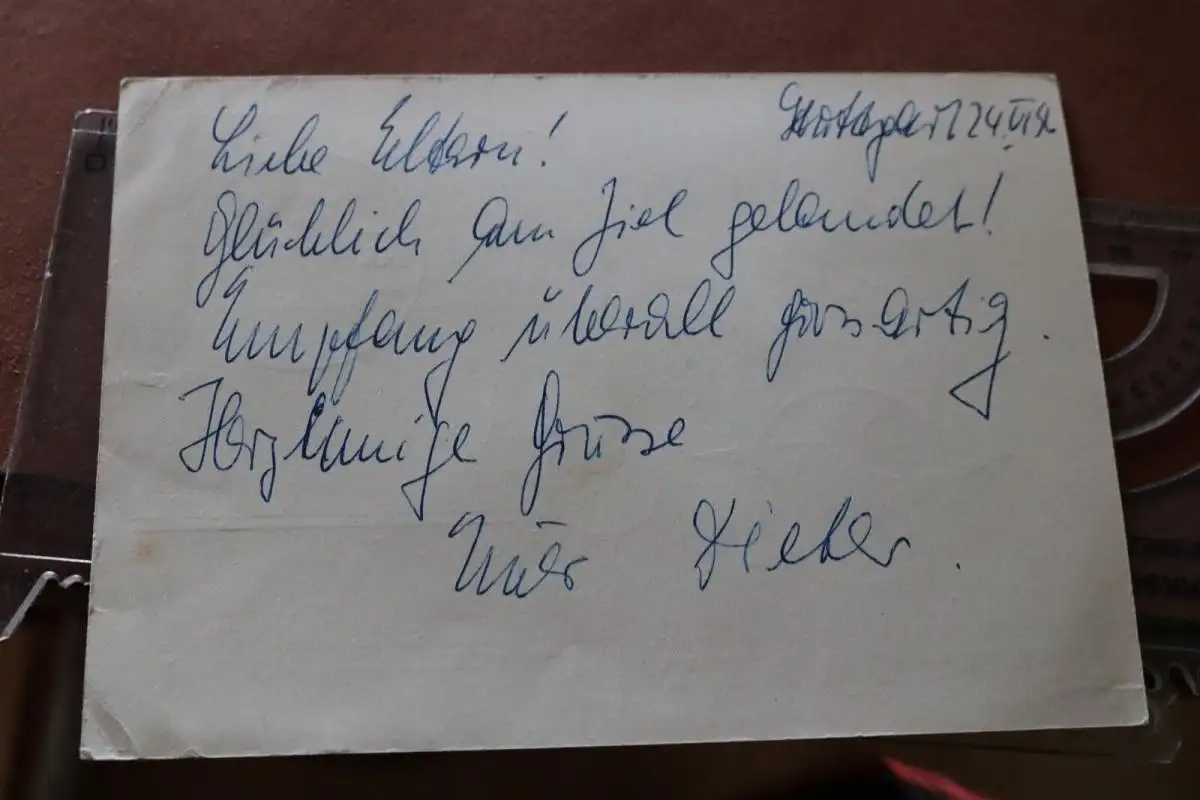 Stuttgart 24.VI
Liebe Eltern!
Glücklich am Ziel gelandet!
Empfang überall grossartig.
Herzinnige Grüsse
Euer Dieter.